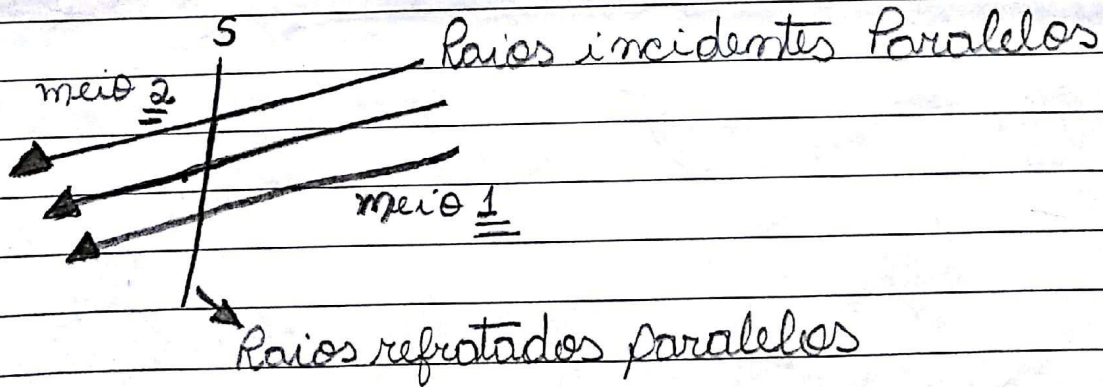 S
Raios incidentes Paralelos
meio 2
meio 1
Raios refratados paralelos